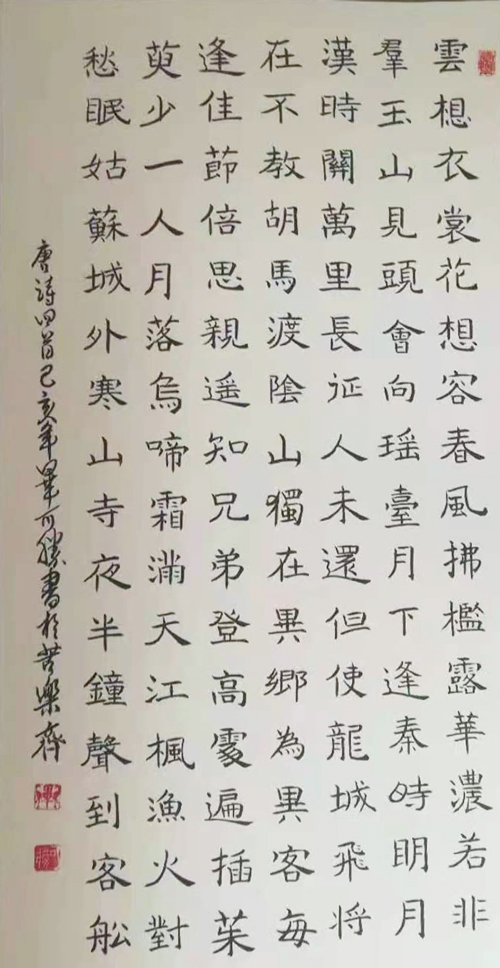 雲想衣裳花想容春風拂檻露華濃若非
羣玉山見頭會向瑤臺月下逢秦時明月
漢時關萬里長征人未還但使龍城飛將
在不教胡馬渡陰山獨在異鄉為異客每
逢佳節倍思親遥知兄弟登高處遍插茱
萸少一人月落烏啼霜滿天江楓漁火對
愁眠姑蘇城外寒山寺夜半鐘聲到客船
唐詩四首己亥年畢可勝書於苦樂齋